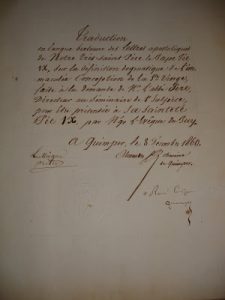 Traduction
en langue bretonne des lettres apostoliques
de Notre Très-Saint Père le Pape Pie
IX, sur la définition dogmatique de l'im
maculée Conception de la Ste Vierge,
faite à la demande de Mr l'abbé Sire,
Directeur au Séminaire de St Sulpice,
pour être présentée à Sa Sainteté
Pie IX par Mgr l'évêque du Puy
A Quimper, le 8
de Quimper